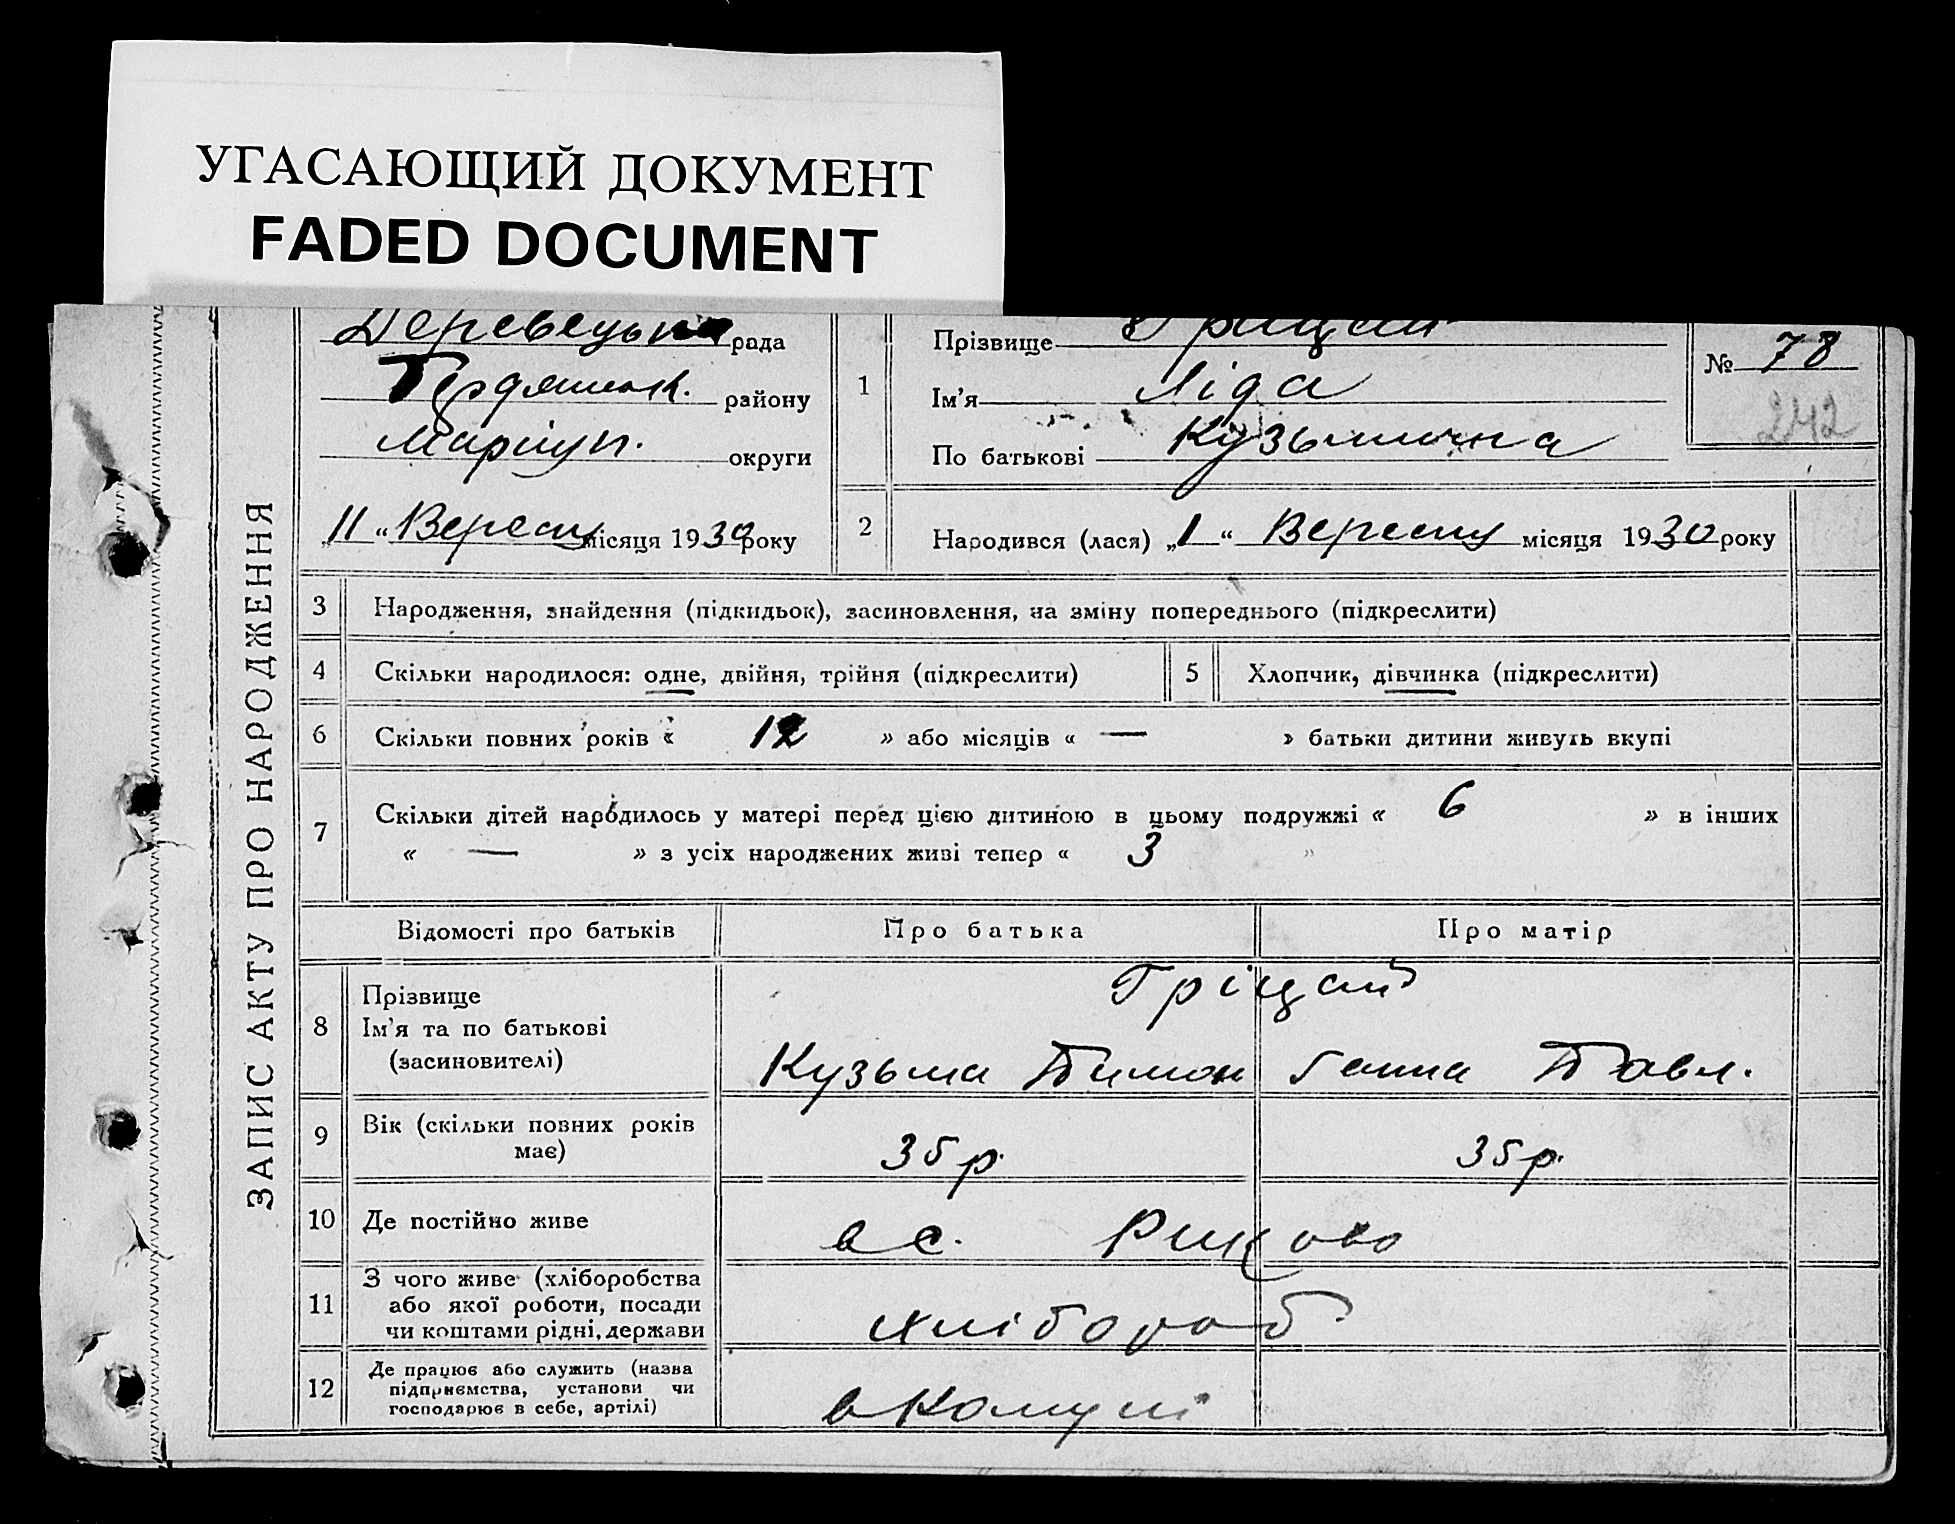 УГАСАЮЩИЙ ДОКУМЕНТ
FADED DOCUMENT
ЗАПИС АКТУ ПРО НАРОДЖЕННЯ
рада
району
Маріуп. округи
„11“ Вересну місяця 1930 року
1
Прізвище Грицай
Ім'я Ліда
По батькові Кузьминична
№ 78
242
2 Народився (лася) „1“ Вересну місяця 1930 року
3 Народження, знайдення (підкидьок), засиновлення, на зміну попереднього (підкреслити)
4 Скільки народилося: одне, двійня, трійня (підкреслити) 5 Хлопчик, дівчинка (підкреслити)
6 Скільки повних років « 12 » або місяців « — » батьки дитини живуть вкупі
7 Скільки дітей народилось у матері перед цією дитиною в цьому подружжі « 6 » в інших
« — » з усіх народжених живі тепер « 3 »
Відомості про батьків Про батька Про матір
8 Прізвище Гріцай
Ім'я та по батькові
(засиновителі) Кузьма Тимон Ганна Павл.
9 Вік (скільки повних років
має) 35 р. 35 р.
10 Де постійно живе в с. Риково
11 З чого живе (хліборобства
або якої роботи, посади
чи коштами рідні, держави хлібороб
12 Де працює або служить (назва
підприємства, установи чи
господарює в себе, артілі) в Комуні